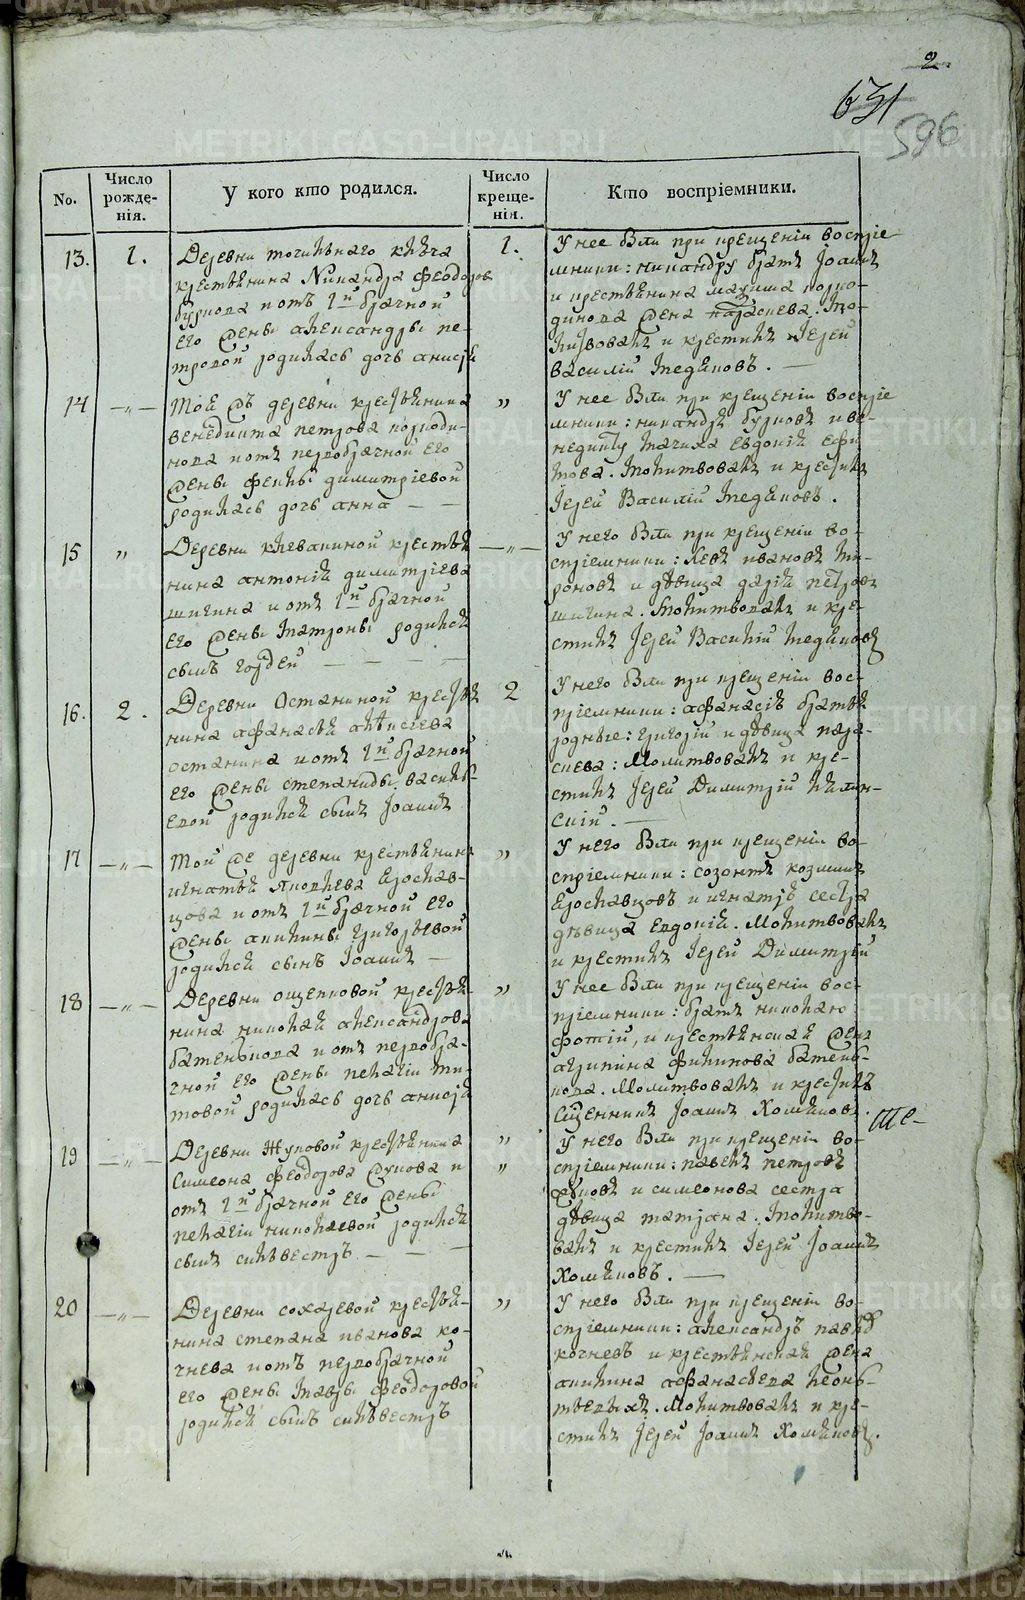 2
631
596
No.
Число рожде-нія.
У кого кто родился.
Число креще-нія.
Кто воспріемники.
13. 1.
Деревни
крестьянина Никандра Феодорова
Бурнова и отъ 1й брачной
его жены александры пе-
тровой родилась дочь анисія
1.
У нее были при крещеніи воспріе-
мники: никандру братъ Іоаннъ
и крестьянина
жена
и крестилъ Іерей
василій
14 —„—
Той жъ деревни крестьянина
венедикта петрова
и отъ первобрачной его
жены феклы димитріевой
родилась дочь анна — —
„
У нее были при крещеніи воспріе-
мники: никандръ бурновъ и ве-
недикту евдокія
Молитвовалъ и крестилъ
Іерей Василій
15 „
Деревни клевакиной крестья-
нина антонія димитріева
шигина и отъ 1й брачной
его жены Матроны родился
сынъ гордей — — — —
—„—
У него были при крещеніи во-
спріемники: ивановъ Ми-
роновъ и дѣвица дарія петрова
шигина. Молитвовалъ и кре-
стилъ Іерей Василій
16. 2.
Деревни Останиной крестья-
нина афанасія алексіева
останина и отъ 1й брачной
его жены степаниды василь-
евой родился сынъ Іоаннъ
2
У него были при крещеніи вос-
пріемники: афанасію братья
родные: григорій и дѣвица пара-
скева: Молитвовалъ и кре-
стилъ Іерей Димитрій
17 —„—
Той же деревни крестьянина
игнатія Яковлева Ерослав-
цова и отъ 1й брачной его
жены акилины григорьевой
родился сынъ Іоаннъ —
„
У него были при крещеніи во-
спріемники: созонтъ козминъ
Ерославцовъ и игнатія сестра
дѣвица Евдокія. Молитвовалъ
и крестилъ Іерей Димитрій
18 —„—
Деревни ощепковой крестья-
нина николая александрова
батенькова и отъ первобра-
чной его жены пелагіи ти-
товой родилась дочь анисія
„
У нее были при крещеніи вос-
пріемники: братъ николаю
фотій, и крестьянская жена
агрипина филипова батень-
кова. Молитвовалъ и крестилъ
Сщенникъ Іоаннъ Хомяковъ.
19 —„—
Деревни Жуковой крестьянина
Симеона Феодорова Жукова и
отъ 1й брачной его жены
пелагіи николаевой родился
сынъ сильвестръ — — —
„
„
У него были при крещеніи во-
спріемники: павелъ петровъ
жуковъ и симеонова сестра
дѣвица татіана. Молитво-
валъ и крестилъ Іерей Іоаннъ
Хомяковъ. —
20 —„—
Деревни сохаревой крестья-
нина степана иванова ко-
чнева и отъ первобрачной
его жены Мавры феодоровой
родился сынъ сильвестръ
„
У него были при крещеніи во-
спріемники: александръ
кочневъ и крестьянская жена
акилина афанасьева леонь-
тьевыхъ. Молитвовалъ и кре-
стилъ Іерей Іоаннъ Хомяковъ.
METRIKI.GASO-URAL.RU